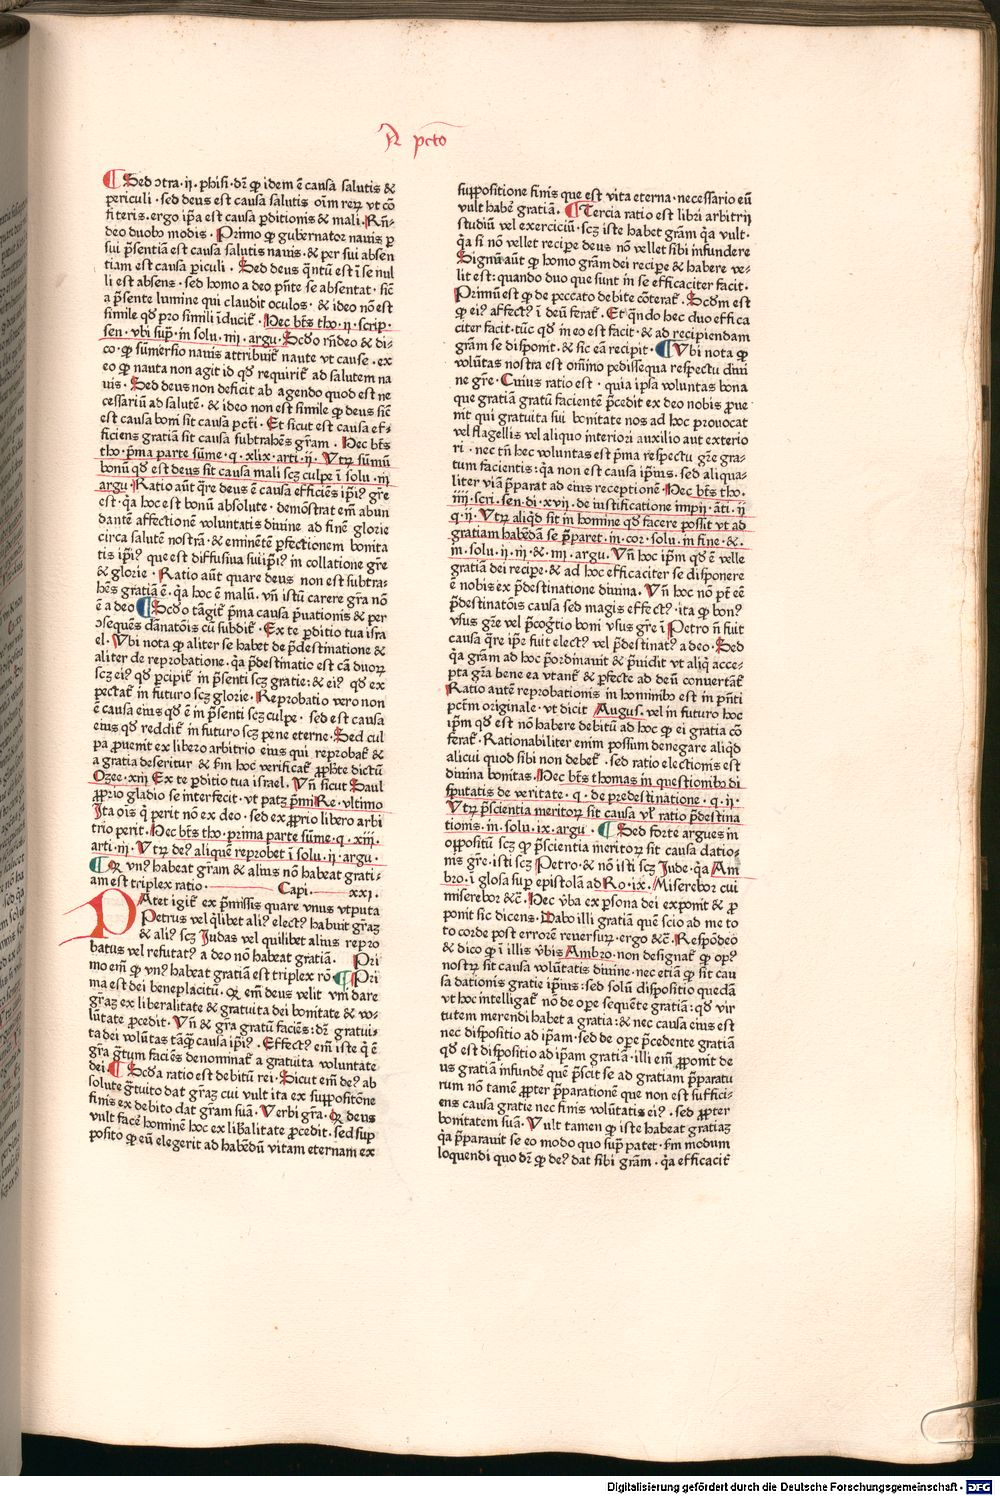 ¶ Sed ɔtra. ij. phisi. dr̄ ꝙ idem ē causa salutis &
periculi. sed deus est causa salutis oīm rerū vt cō
fiteris. ergo ip̄a est causa ꝑditionis & mali. Rn̄-
deo duobꝰ modis. Primo ꝙ gubernator nauis ꝑ
sui pn̄sentiā est causa salutis nauis. & per sui absen
tiam est causa ꝑiculi. Sed deus qͣntū est ī se nul
li est absens. sed homo a deo pn̄te se absentat. sic̄
a pn̄sente lumine qui claudit oculos. & ideo nō est
simile qd̓ pro simili īducit᷑. Hec bt̄s tho. ij. scrip.
sen. vbi supͣ. in solu. iij. argu. Scd̓o rn̄deo & di-
co. ꝙ sūmersio nauis attribuit᷑ naute vt cause. ex
eo ꝙ nauta non agit id qd̓ requirit᷑ ad salutem na
uis. Sed deus non deficit ab agendo quod est ne
cessariū ad salutē. & ideo non est simile ꝙ deus sic̄
est causa boni sit causa pctī. Et sicut est causa ef-
ficiens gratiā sit causa subtrahēs grām. Hec bt̄s
tho. pͥma parte sūme. q. xlix. arti. ij. Vtrū sūmū
bonū qd̓ est deus sit causa mali scꝫ culpe ī solu. iij
argu. Ratio aūt qͣre deus ē causa efficiēs ip̄iꝰ grē
est. qͣ hoc est bonū absolute. demōstrat em̄ abun
dantē affectionē voluntatis diuine ad finē glorie
circa salutē nostrā. & eminētē ꝑfectionem bonita
tis ip̄iꝰ que est diffusiua sui ip̄iꝰ in collatione grē
& glorie. Ratio aūt quare deus non est subtra-
hēs gratiā ē. qͣ hoc ē malū. vn̄ istū carere grā nō
ē a deo ¶ Scd̓o tāgit᷑ pͥma causa pͥuationis & per
ɔsequēs dānatōis cū subdit᷑. Ex te ꝑditio tua isra
el. Vbi nota ꝙ aliter se habet de pͥdestinatione &
aliter de reprobatione. qͣ pͥdestinatio est cā duoꝝ
scꝫ eiꝰ qd̓ ꝑcipit᷑ in pͥsenti scꝫ gratie: & eiꝰ qd̓ ex
pectat᷑ in futuro scꝫ glorie. Reprobatio vero non
ē causa eius qd̓ ē in pͥsenti scꝫ culpe. sed est causa
eius qd̓ reddit᷑ in futuro scꝫ pene eterne. Sed cul
pa ꝓuenit ex libero arbitrio eius qui reprobat᷑ &
a gratia deseritur & fm̄ hoc verificat᷑ ꝓphēte dictū
Ozee. xiij Ex te ꝑditio tua israel. Vn̄ sicut Saul
ꝓprio gladio se interfecit. vt patꝫ pͥmi Re. vltimo
Ita oīs qͥ perit nō ex deo. sed ex ꝓprio libero arbi
trio perit. Hec bt̄s tho. prima parte sūme. q. xiij.
arti. iij. Vtrū deꝰ aliquē reprobet ī solu. ij. argu.
¶ Qꝛ vnꝰ habeat grām & alius nō habeat grati-
am est triplex ratio. Capi. xxi.
Patet igit᷑ ex pͥmissis quare vnus vtputa
Petrus vel qͥlibet aliꝰ electꝰ habuit grāꝫ
& aliꝰ scꝫ Judas vel quilibet alius repro
batus vel refutatꝰ a deo nō habeat gratiā. Pri
mo em̄ ꝙ vnꝰ habeat gratiā est triplex rō ¶ Pri
ma est dei beneplacitū. Qꝛ em̄ deus velit vni dare
grāꝫ ex liberalitate & gratuita dei bonitate & vo-
lūtate ꝓcedit. Vn̄ & grā gratū faciēs: dr̄ gratui-
ta dei volūtas tāqͣꝫ causa ip̄iꝰ. Effectꝰ em̄ iste qͥ ē
grā gͣtum faciēs denominat᷑ a gratuita voluntate
dei ¶ Scd̓a ratio est debitū rei. Sicut em̄ deꝰ ab
solute gͣtuito dat grāꝫ cui vult ita ex suppositōne
finis ex debito dat grām suā. Verbi grā. Qꝛ deus
vult facē hominē hoc ex lib̓alitate ꝓcedit. sed sup
posito ꝙ eū elegerit ad habēdū vitam eternam ex
suppositione finis que est vita eterna. necessario eū
vult habē gratiā. ¶ Tercia ratio est libri arbitrij
studiū vel exerciciū. scꝫ iste habet grām qͣ vult.
qͣ si nō vellet recipe deus nō vellet sibi infundere
Signū aūt ꝙ homo grām dei recipe & habere ve-
lit est: quando duo que sunt in se efficaciter facit.
Primū est ꝙ de peccato debite cōterat᷑. Scd̓m est
ꝙ eiꝰ affectꝰ ī deū ferat᷑. Et qͣndo hec duo effica
citer facit. tūc qd̓ in eo est facit. & ad recipiendam
grām se disponit. & sic eā recipit. ¶ Vbi nota ꝙ
volūtas nostra est om̄ino pedissequa respectu diui
ne grē. Cuius ratio est. quia ipsa voluntas bona
que gratiā gratū facientē pͥcedit ex deo nobis ꝓue
nit qui gratuita sui bonitate nos ad hoc prouocat
vel flagellis vel aliquo interiori auxilio aut exterio
ri. nec tn̄ hec voluntas est pͥma respectu grē gra-
tum facientis: qͣ non est causa ip̄ius. sed aliqua-
liter viā pͥparat ad eius receptionē. Hec bt̄s tho.
iiij. scri. sen. di. xvij. de iustificatione impij. āti. ij
q. ij. Vtrū aliqd̓ sit in homine qd̓ facere possit vt ad
gratiam habēdā se pͥparet. in. cor. solu. in fine. &.
in. solu. ij. iij. & iiij. argu. Vn̄ hoc ip̄m qd̓ ē velle
gratiā dei recipe. & ad hoc efficaciter se disponere
ē nobis ex pͥdestinatione diuina. Vn̄ hoc nō pōt eē
pͥdestinatōis causa sed magis effectꝰ. ita ꝙ bonꝰ
vsus grē vel pͥcogͣtio boni vsus grē ī Petro n̄ fuit
causa qͣre ip̄e fuit electꝰ vel pͥdestinatꝰ a deo. Sed
qͣ grām ad hoc pͥordinauit & pͥuidit vt aliqͥ acce-
pta grā bene ea vtant᷑ & ꝑfecte ad deū conuertāt᷑
Ratio autē reprobationis in hominibꝰ est in pn̄ti
pctm̄ originale. vt dicit Augus. vel in futuro hoc
ip̄m qd̓ est nō habere debitū ad hoc ꝙ ei gratia cō
ferat᷑. Rationabiliter enim possum denegare aliqd̓
alicui quod sibi non debet᷑. sed ratio electionis est
diuina bonitas. Hec bt̄s thomas in questionibꝰ di
sputatis de veritate. q. de predestinatione. q. ij.
Vtrū pͥscientia meritoꝝ sit causa vl̓ ratio pͥdestina
tionis. in. solu. ix. argu. ¶ Sed forte argues in
oppositū scꝫ ꝙ pͥscientia meritoꝝ sit causa datio-
nis grē. isti scꝫ Petro. & nō isti scꝫ Jude. qͣ Am
bro. ī glosa suꝑ epistolā ad Ro. ix. Miserebor cui
miserebor &c̄. Hec vͥba ex ꝑsona dei exponit & ꝓ
ponit sic dicens. Dabo illi gratiā quē scio ad me to
to corde post errorē reuersuꝝ. ergo &c̄. Respōdeo
& dico ꝙ ī illis vͥbis Ambro. non designat᷑ ꝙ opꝰ
nostꝝ sit causa volūtatis diuine. nec etiā ꝙ sit cau
sa dationis gratie ip̄ius: sed solū dispositio quedā
vt hoc intelligat᷑ nō de ope sequēte gratiā: qd̓ vir
tutem merendi habet a gratia: & nec causa eius est
nec dispositio ad ip̄am. sed de oꝑe pͥcedente gratiā
qd̓ est dispositio ad ip̄am gratiā. illi em̄ ꝓponit de
us gratiā infundē quē pͥscit se ad gratiam pͥparatu
rum nō tamē ꝓpter pͥparationē que non est suffici-
ens causa gratie nec finis volūtatis eiꝰ. sed ꝓpter
bonitatem suā. Vult tamen ꝙ iste habeat gratiaꝫ
qͣ pͥparauit se eo modo quo supͣ patet. fm̄ modum
loquendi quo dr̄ ꝙ deꝰ dat sibi grām. qͣ efficacit᷑
Digitalisierung gefördert durch die Deutsche Forschungsgemeinschaft - DFG